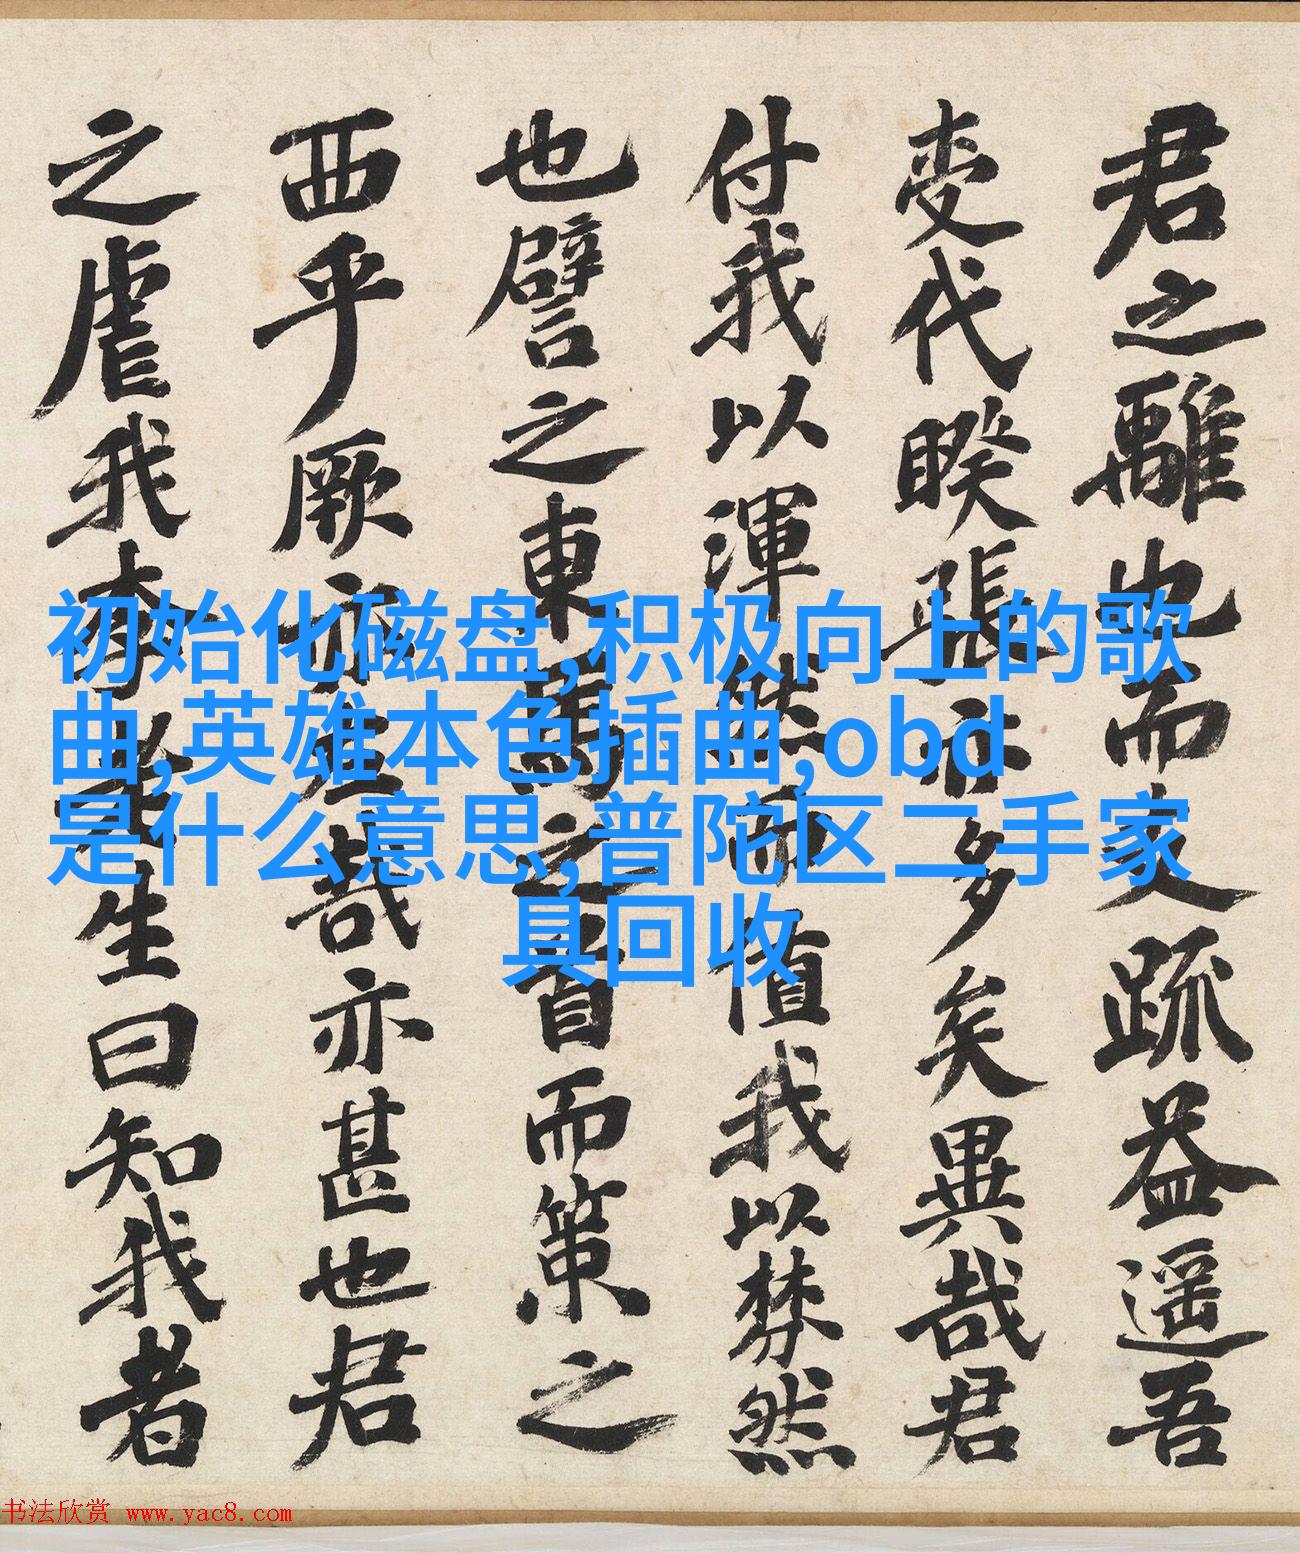 君之離也而疏益遥吾
代睽張亦多矣異哉君
付我以渾然而值我以棼然
也譬之東馬之首而策之
西乎厥亦哉亦甚也君
之虐我生曰知我者
初始化磁盘,积极向上的歌
曲,英雄本色插曲,obd
是什么意思,普陀区二手家
具回收
书法欣赏 www.yac8.com